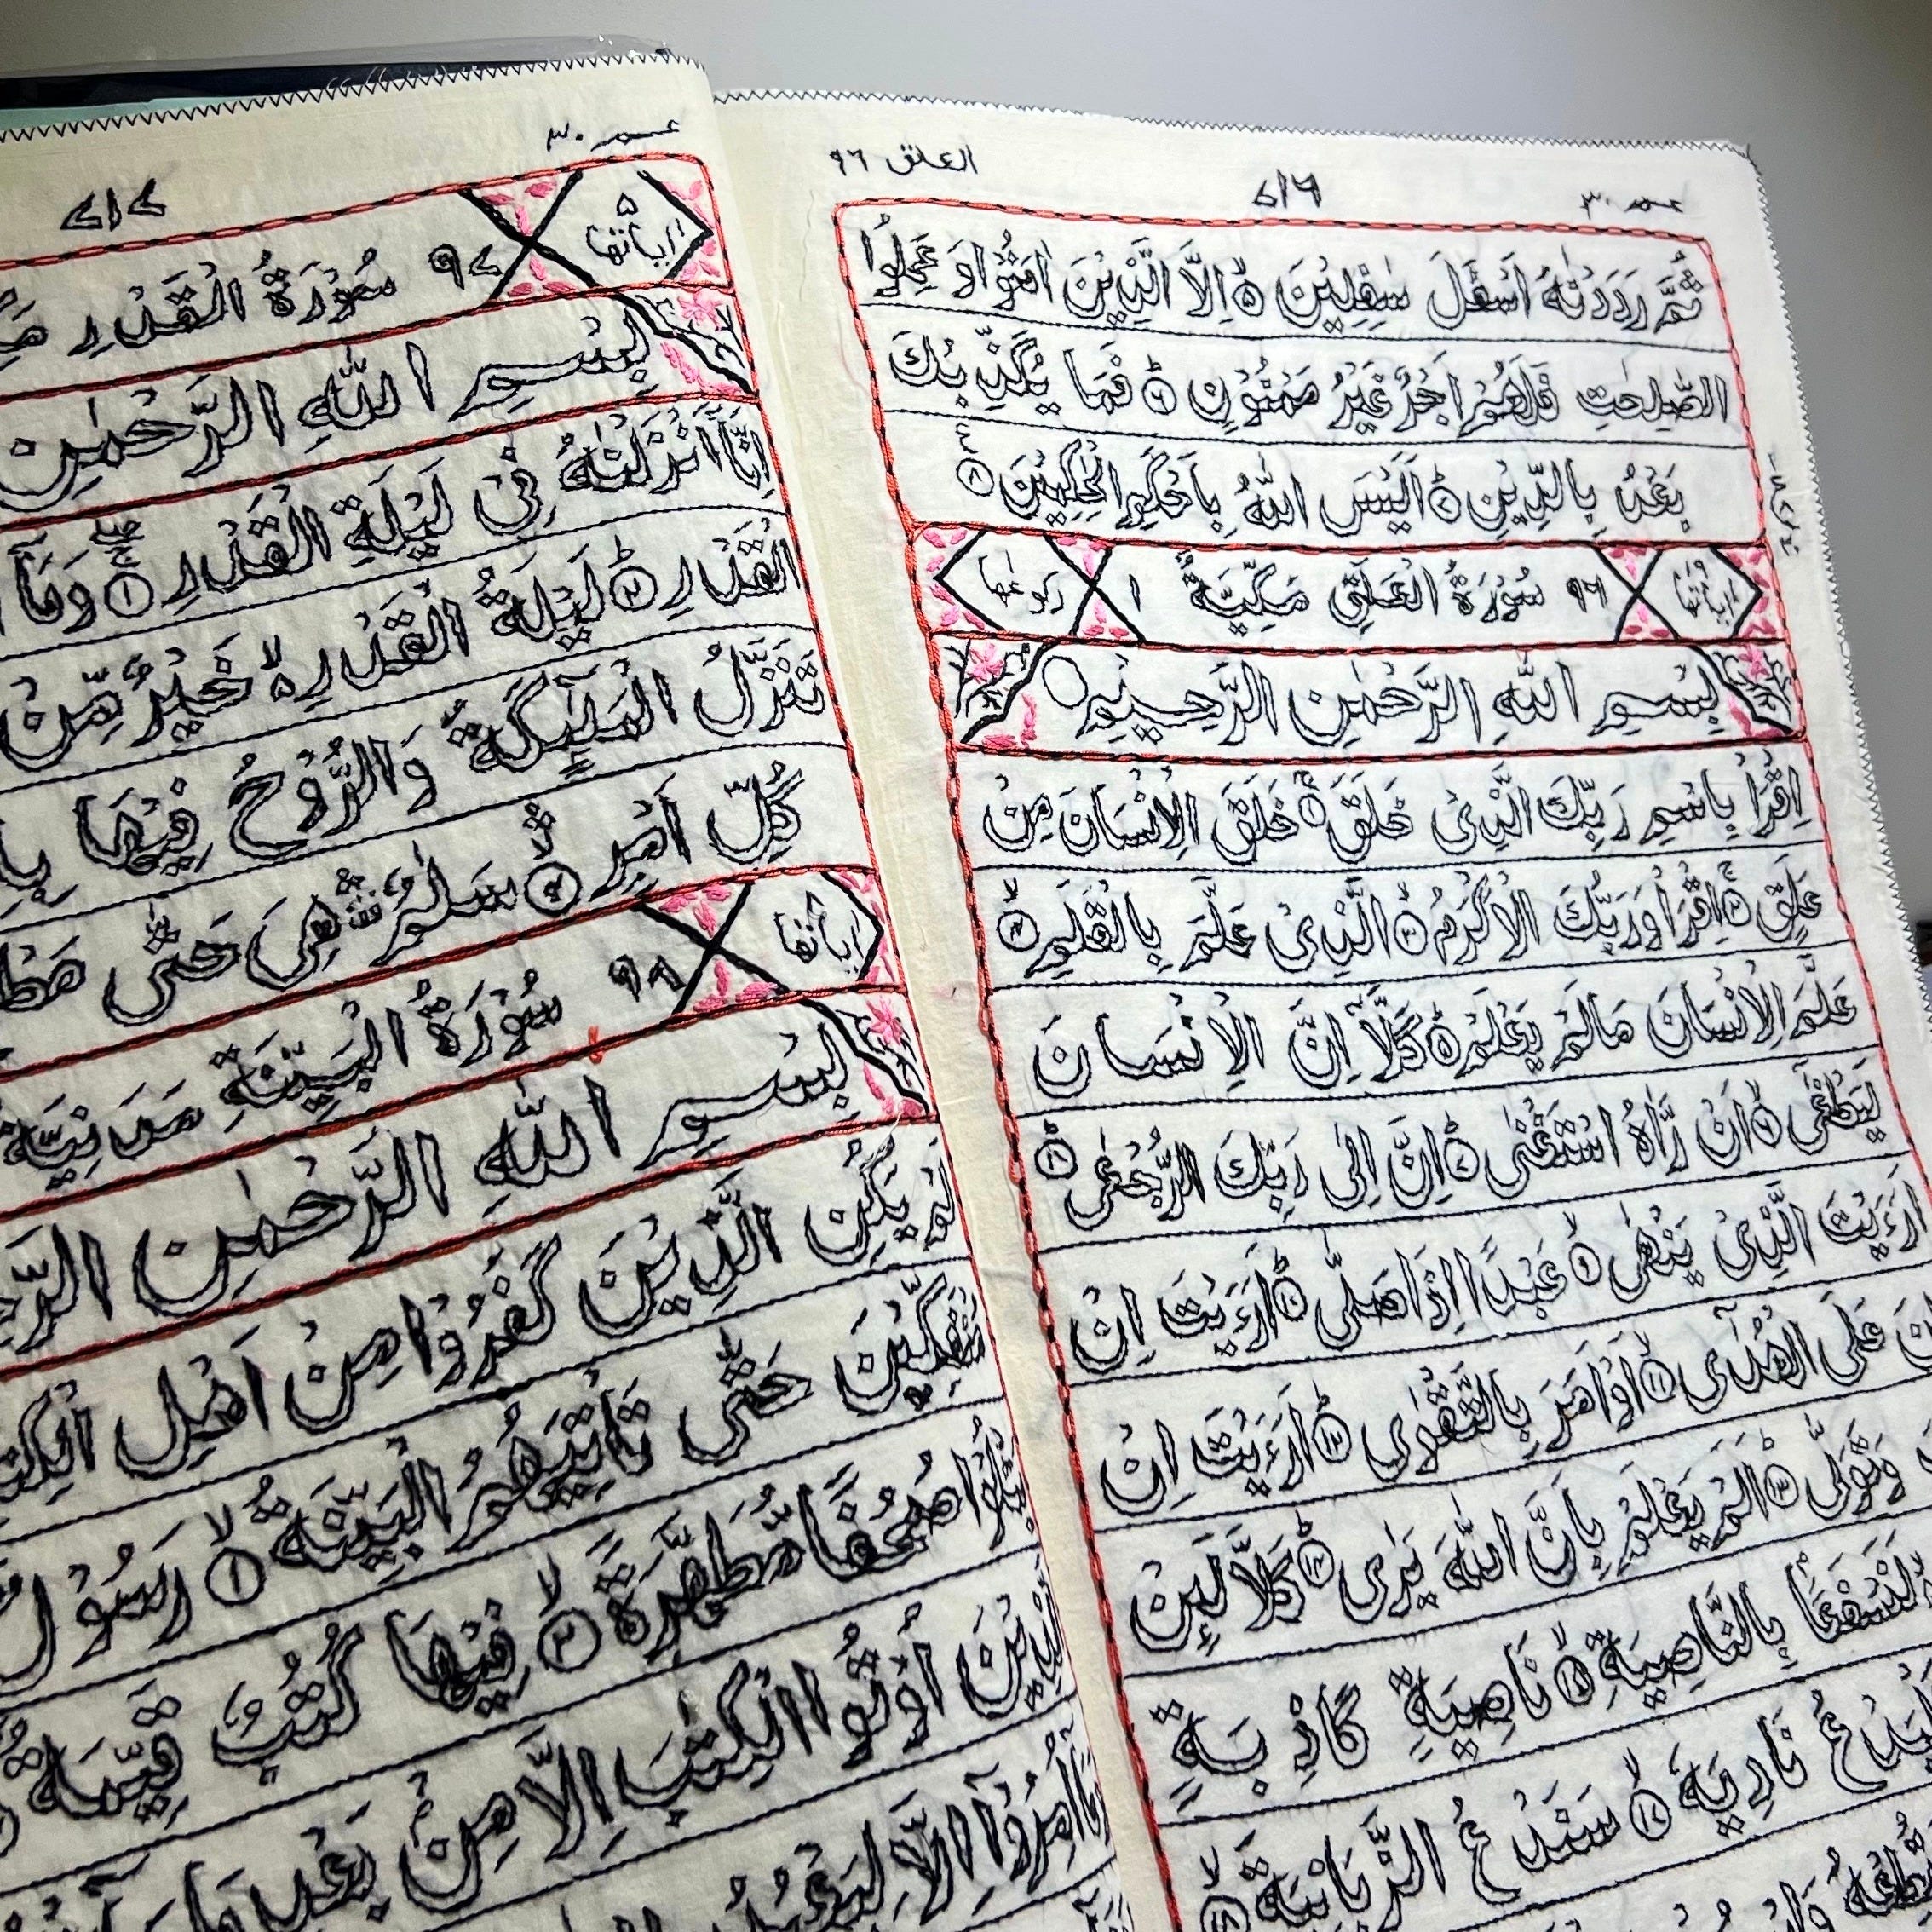 العلق ٩٦
٧١٦
عـم ٣٠
ثُمَّ رَدَدْنٰهُ اَسْفَلَ سٰفِلِيْنَ ۵ اِلَّا الَّذِيْنَ اٰمَنُوْا وَ عَمِلُوا
الصّٰلِحٰتِ فَلَهُمْ اَجْرٌ غَيْرُ مَمْنُوْنٍ ٦ فَمَا يُكَذِّبُكَ
بَعْدُ بِالدِّيْنِ ٧ اَلَيْسَ اللّٰهُ بِاَحْكَمِ الْحٰكِمِيْنَ ٨
اٰيَاتُهَا ٩٦ سُوْرَةُ الْعَلَقِ مَكِّيَّةٌ ١ ركوعها
بِسْمِ اللّٰهِ الرَّحْمٰنِ الرَّحِيْمِ
اِقْرَاْ بِاسْمِ رَبِّكَ الَّذِىْ خَلَقَ ١ خَلَقَ الْاِنْسَانَ مِنْ
عَلَقٍ ٢ اِقْرَاْ وَرَبُّكَ الْاَكْرَمُ ٣ الَّذِىْ عَلَّمَ بِالْقَلَمِ ٤
عَلَّمَ الْاِنْسَانَ مَا لَمْ يَعْلَمْ ۵ كَلَّآ اِنَّ الْاِنْسَانَ
لَيَطْغٰٓى ٦ اَنْ رَّاٰهُ اسْتَغْنٰى ٧ اِنَّ اِلٰى رَبِّكَ الرُّجْعٰى ٨
اَرَءَيْتَ الَّذِىْ يَنْهٰى ٩ عَبْدًا اِذَا صَلّٰى ١٠ اَرَءَيْتَ اِنْ
كَانَ عَلَى الْهُدٰٓى ١١ اَوْ اَمَرَ بِالتَّقْوٰى ١٢ اَرَءَيْتَ اِنْ
وَتَوَلّٰى ١٣ اَلَمْ يَعْلَمْ بِاَنَّ اللّٰهَ يَرٰى ١٤ كَلَّا لَئِنْ
لَنَسْفَعًۢا بِالنَّاصِيَةِ ١۵ نَاصِيَةٍ كَاذِبَةٍ
نَادِيَهٗ ١٧ سَنَدْعُ الزَّبَانِيَةَ ١٨
٧١٧
عـم ٣٠
۵ اٰيَاتُهَا ٩٧ سُوْرَةُ الْقَدْرِ
بِسْمِ اللّٰهِ الرَّحْمٰنِ
اِنَّآ اَنْزَلْنٰهُ فِىْ لَيْلَةِ الْقَدْرِ ١ وَمَآ
الْقَدْرِ ٢ لَيْلَةُ الْقَدْرِ ۵ خَيْرٌ مِّنْ
تَنَزَّلُ الْمَلٰٓئِكَةُ وَالرُّوْحُ فِيْهَا
كُلِّ اَمْرٍ ٤ سَلٰمٌ هِىَ حَتّٰى
اٰيَاتُهَا ٨ ٩٨ سُوْرَةُ الْبَيِّنَةِ مَدَنِيَّةٌ
بِسْمِ اللّٰهِ الرَّحْمٰنِ
لَمْ يَكُنِ الَّذِيْنَ كَفَرُوْا مِنْ اَهْلِ
مُنْفَكِّيْنَ حَتّٰى تَاْتِيَهُمُ الْبَيِّنَةُ ١ رَسُوْلٌ
يَتْلُوْا صُحُفًا مُّطَهَّرَةً ٢ فِيْهَا كُتُبٌ قَيِّمَةٌ
الَّذِيْنَ اُوْتُوا الْكِتٰبَ اِلَّا مِنْۢ بَعْدِ
وَمَآ اُمِرُوْٓا اِلَّا